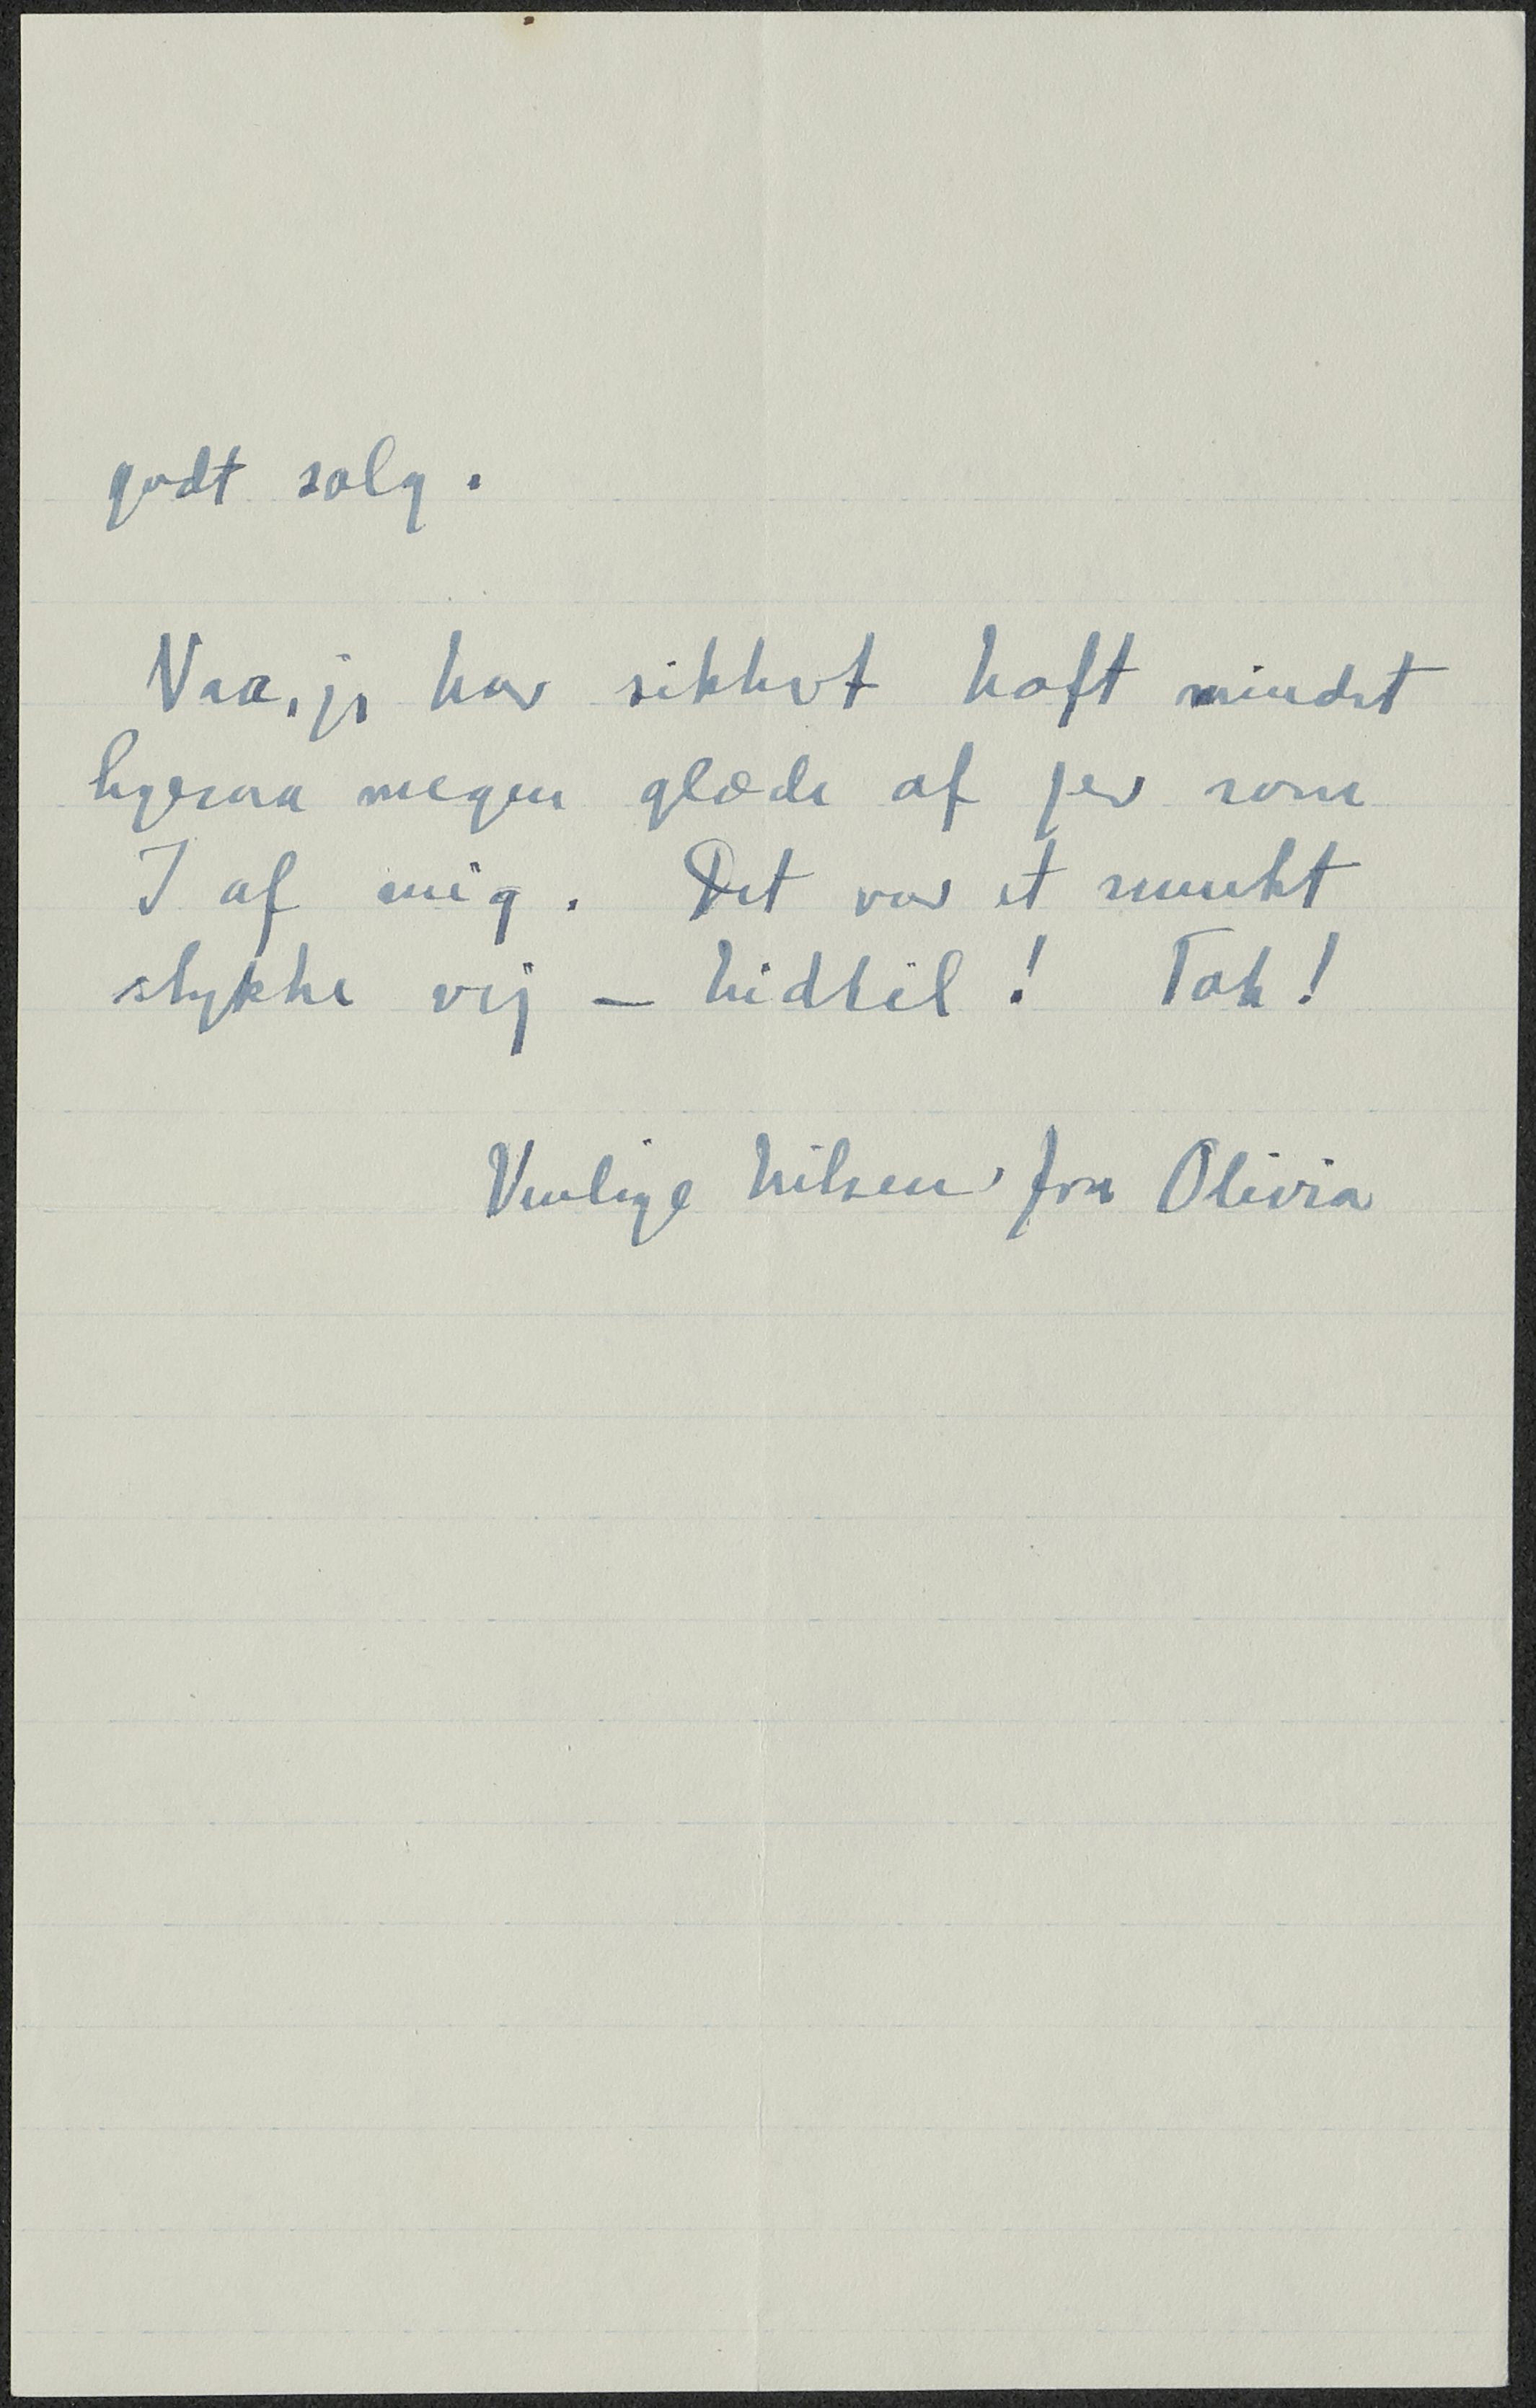 godt salg.
Naa, jeg har sikkert haft mindst
ligesaa megen glæde af jer som
I af mig. Det var et smukt
stykke vej – hidtil! Tak!
Venlige hilsener fra Olivia